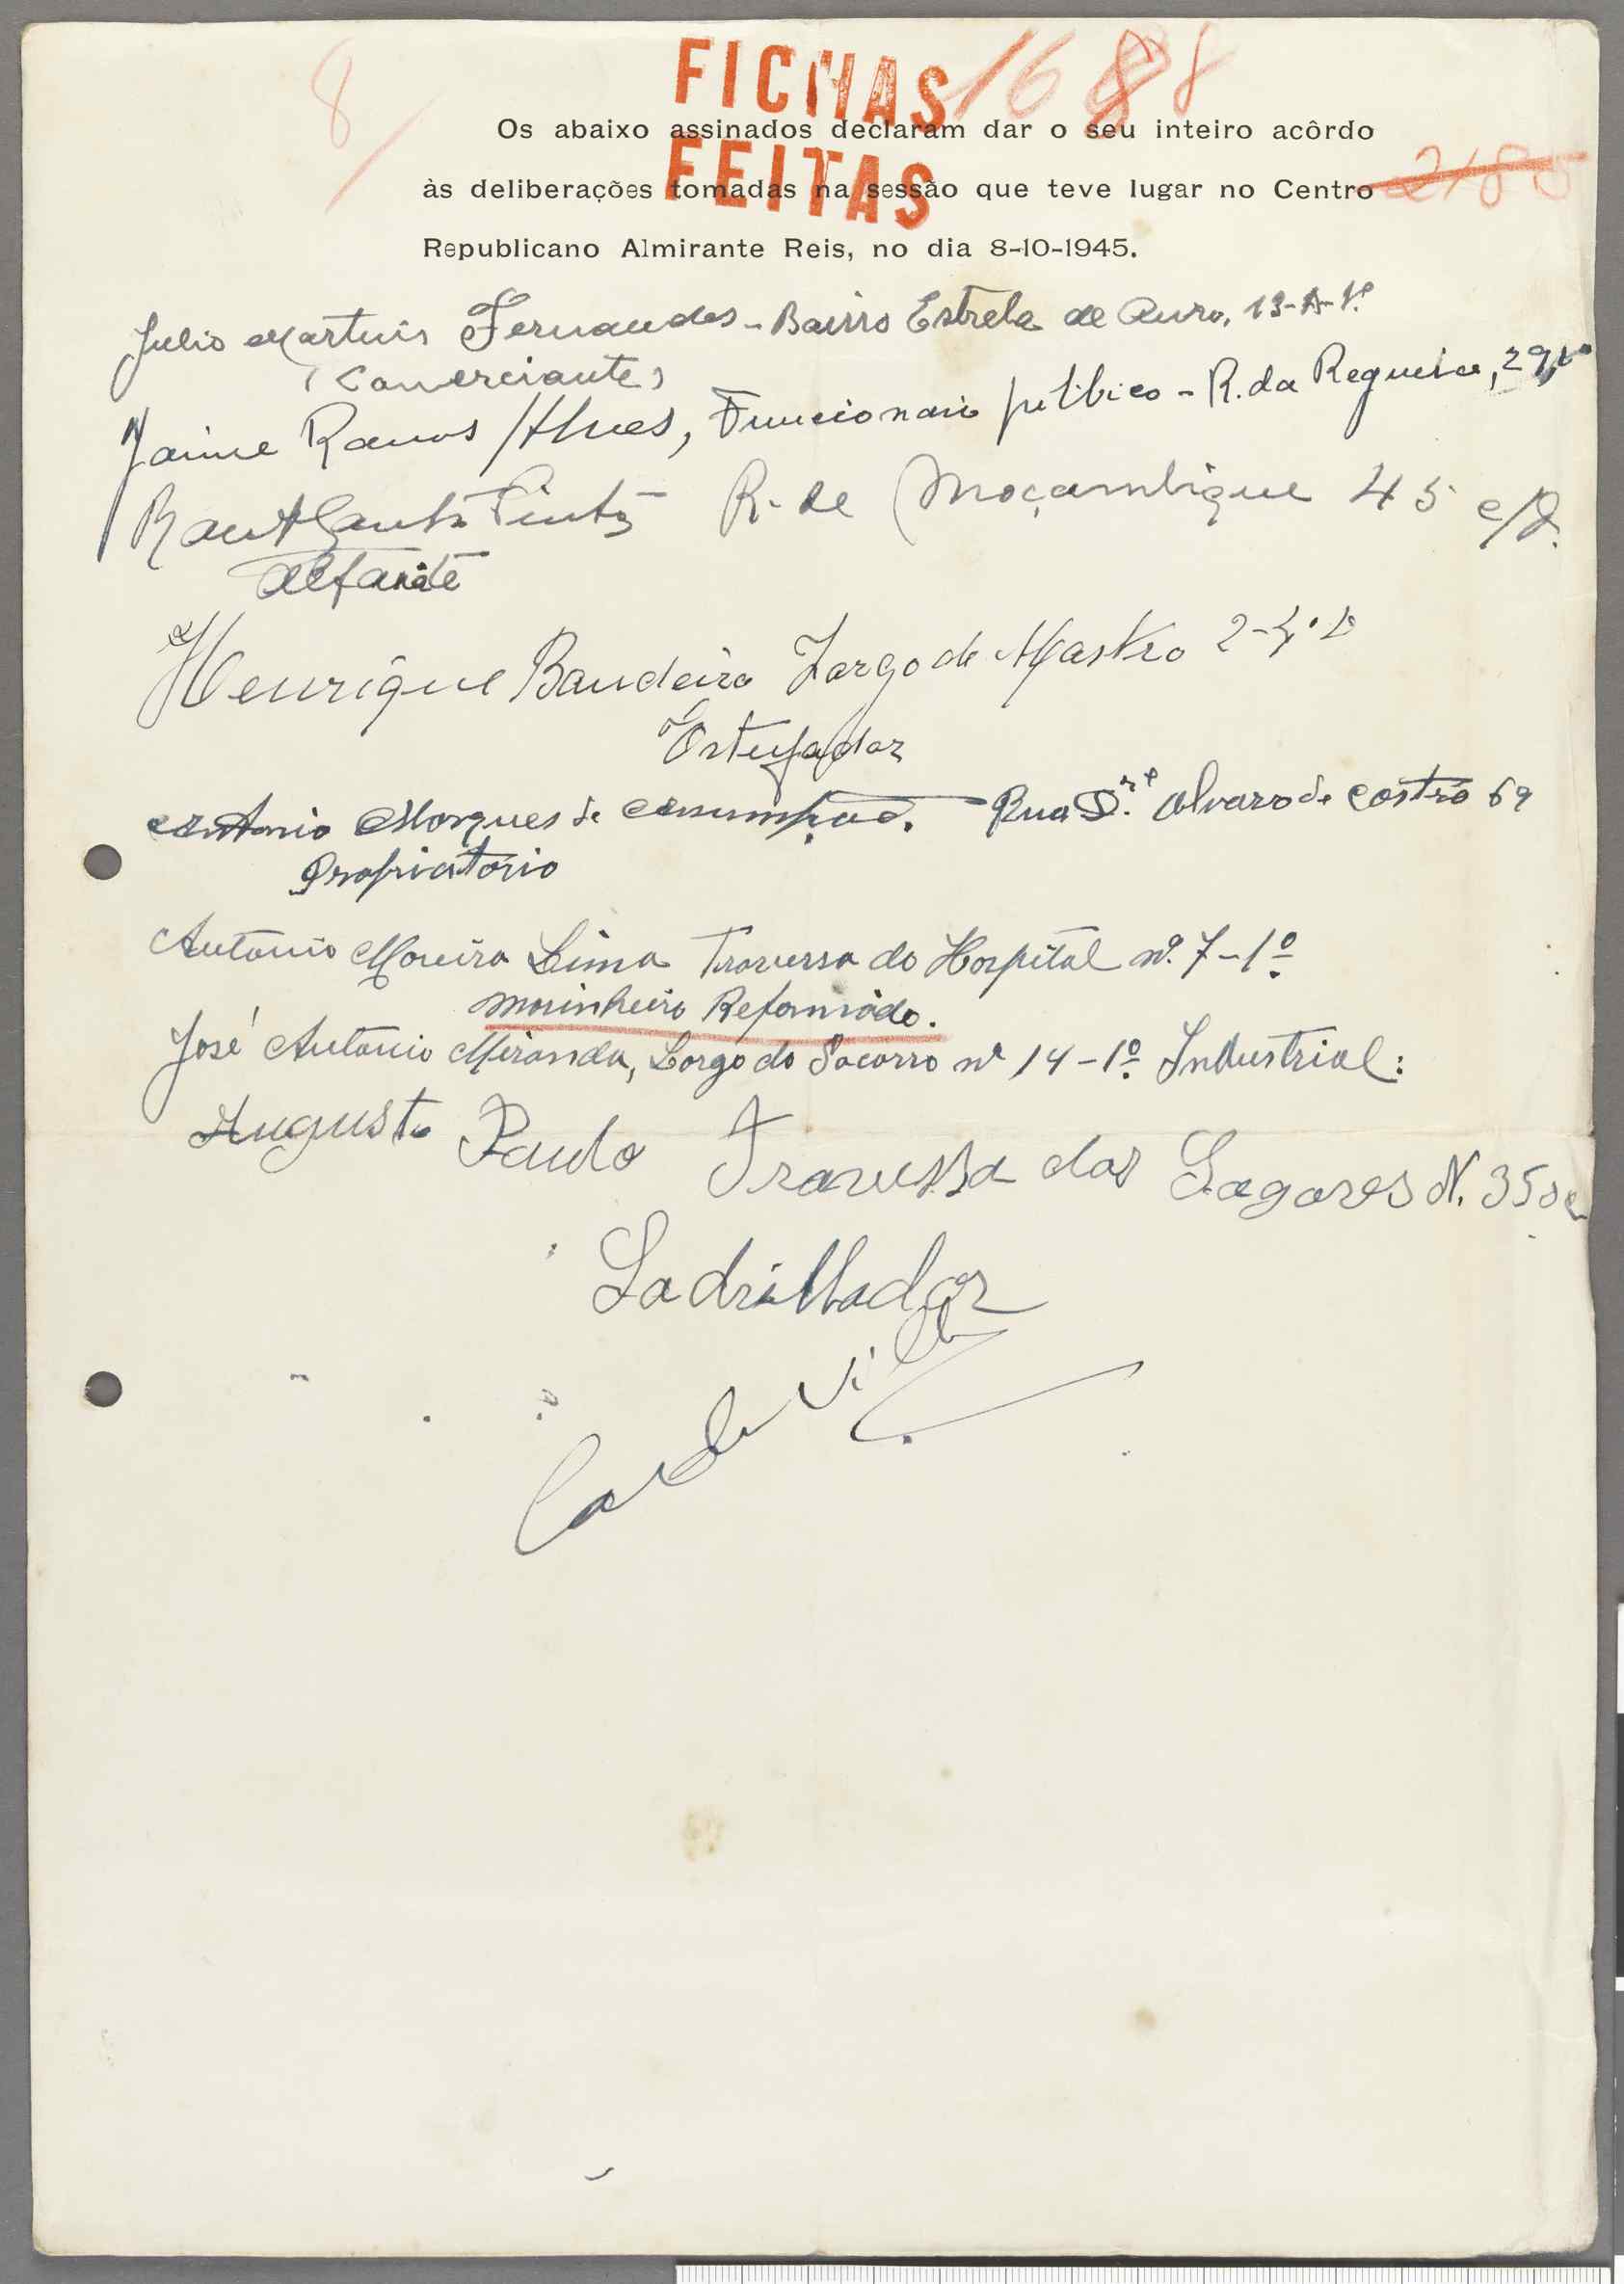 8
FICHAS 1688
FEITAS
Os abaixo assinados declaram dar o seu inteiro acôrdo
às deliberações tomadas na sessão que teve lugar no Centro
Republicano Almirante Reis, no dia 8-10-1945.
Julio Martins Fernandes - Bairro Estrela de Ouro, 13-A-1º
(Comerciante)
Jaime Ramos Alves, Funcionario publico - R. da Regueira, 29,
Raul Santos Pinto R. de Moçambique 45
Alfaiate
Henrique Bandeira Largo de Mastro 2-
Estufador
Antonio Marques de Rua Alvaro de Castro 69
Propriatorio
Antonio Moreira Lima Travessa do Hospital nº 7-1º
Marinheiro Reformado.
José Antonio Miranda, Largo do Socorro nº 14-1º Industrial:
Augusto Paulo Travessa das Lagares N. 35
Ladrilhador